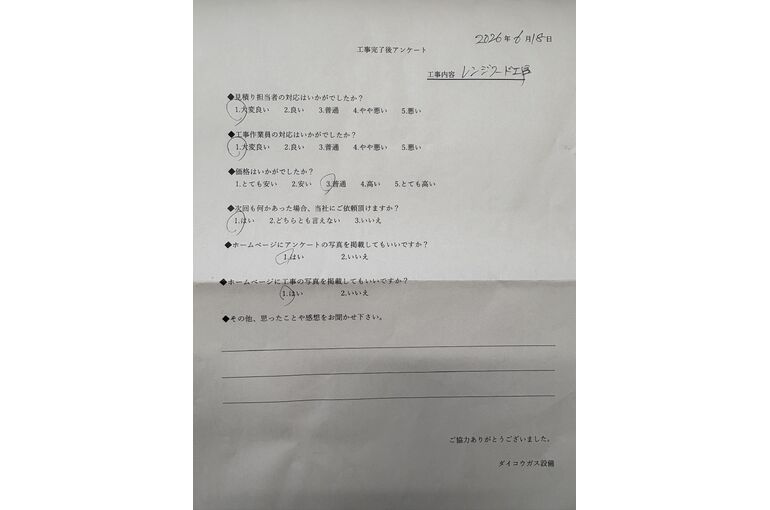 2026年6月18日
工事完了後アンケート
工事内容 レンジフード工事
◆見積り担当者の対応はいかがでしたか？
1.大変良い 2.良い 3.普通 4.やや悪い 5.悪い
◆工事作業員の対応はいかがでしたか？
1.大変良い 2.良い 3.普通 4.やや悪い 5.悪い
◆価格はいかがでしたか？
1.とても安い 2.安い 3.普通 4.高い 5.とても高い
◆次回も何かあった場合、当社にご依頼頂けますか？
1.はい 2.どちらとも言えない 3.いいえ
◆ホームページにアンケートの写真を掲載してもいいですか？
1.はい 2.いいえ
◆ホームページに工事の写真を掲載してもいいですか？
1.はい 2.いいえ
◆その他、思ったことや感想をお聞かせ下さい。
ご協力ありがとうございました。
ダイコウガス設備